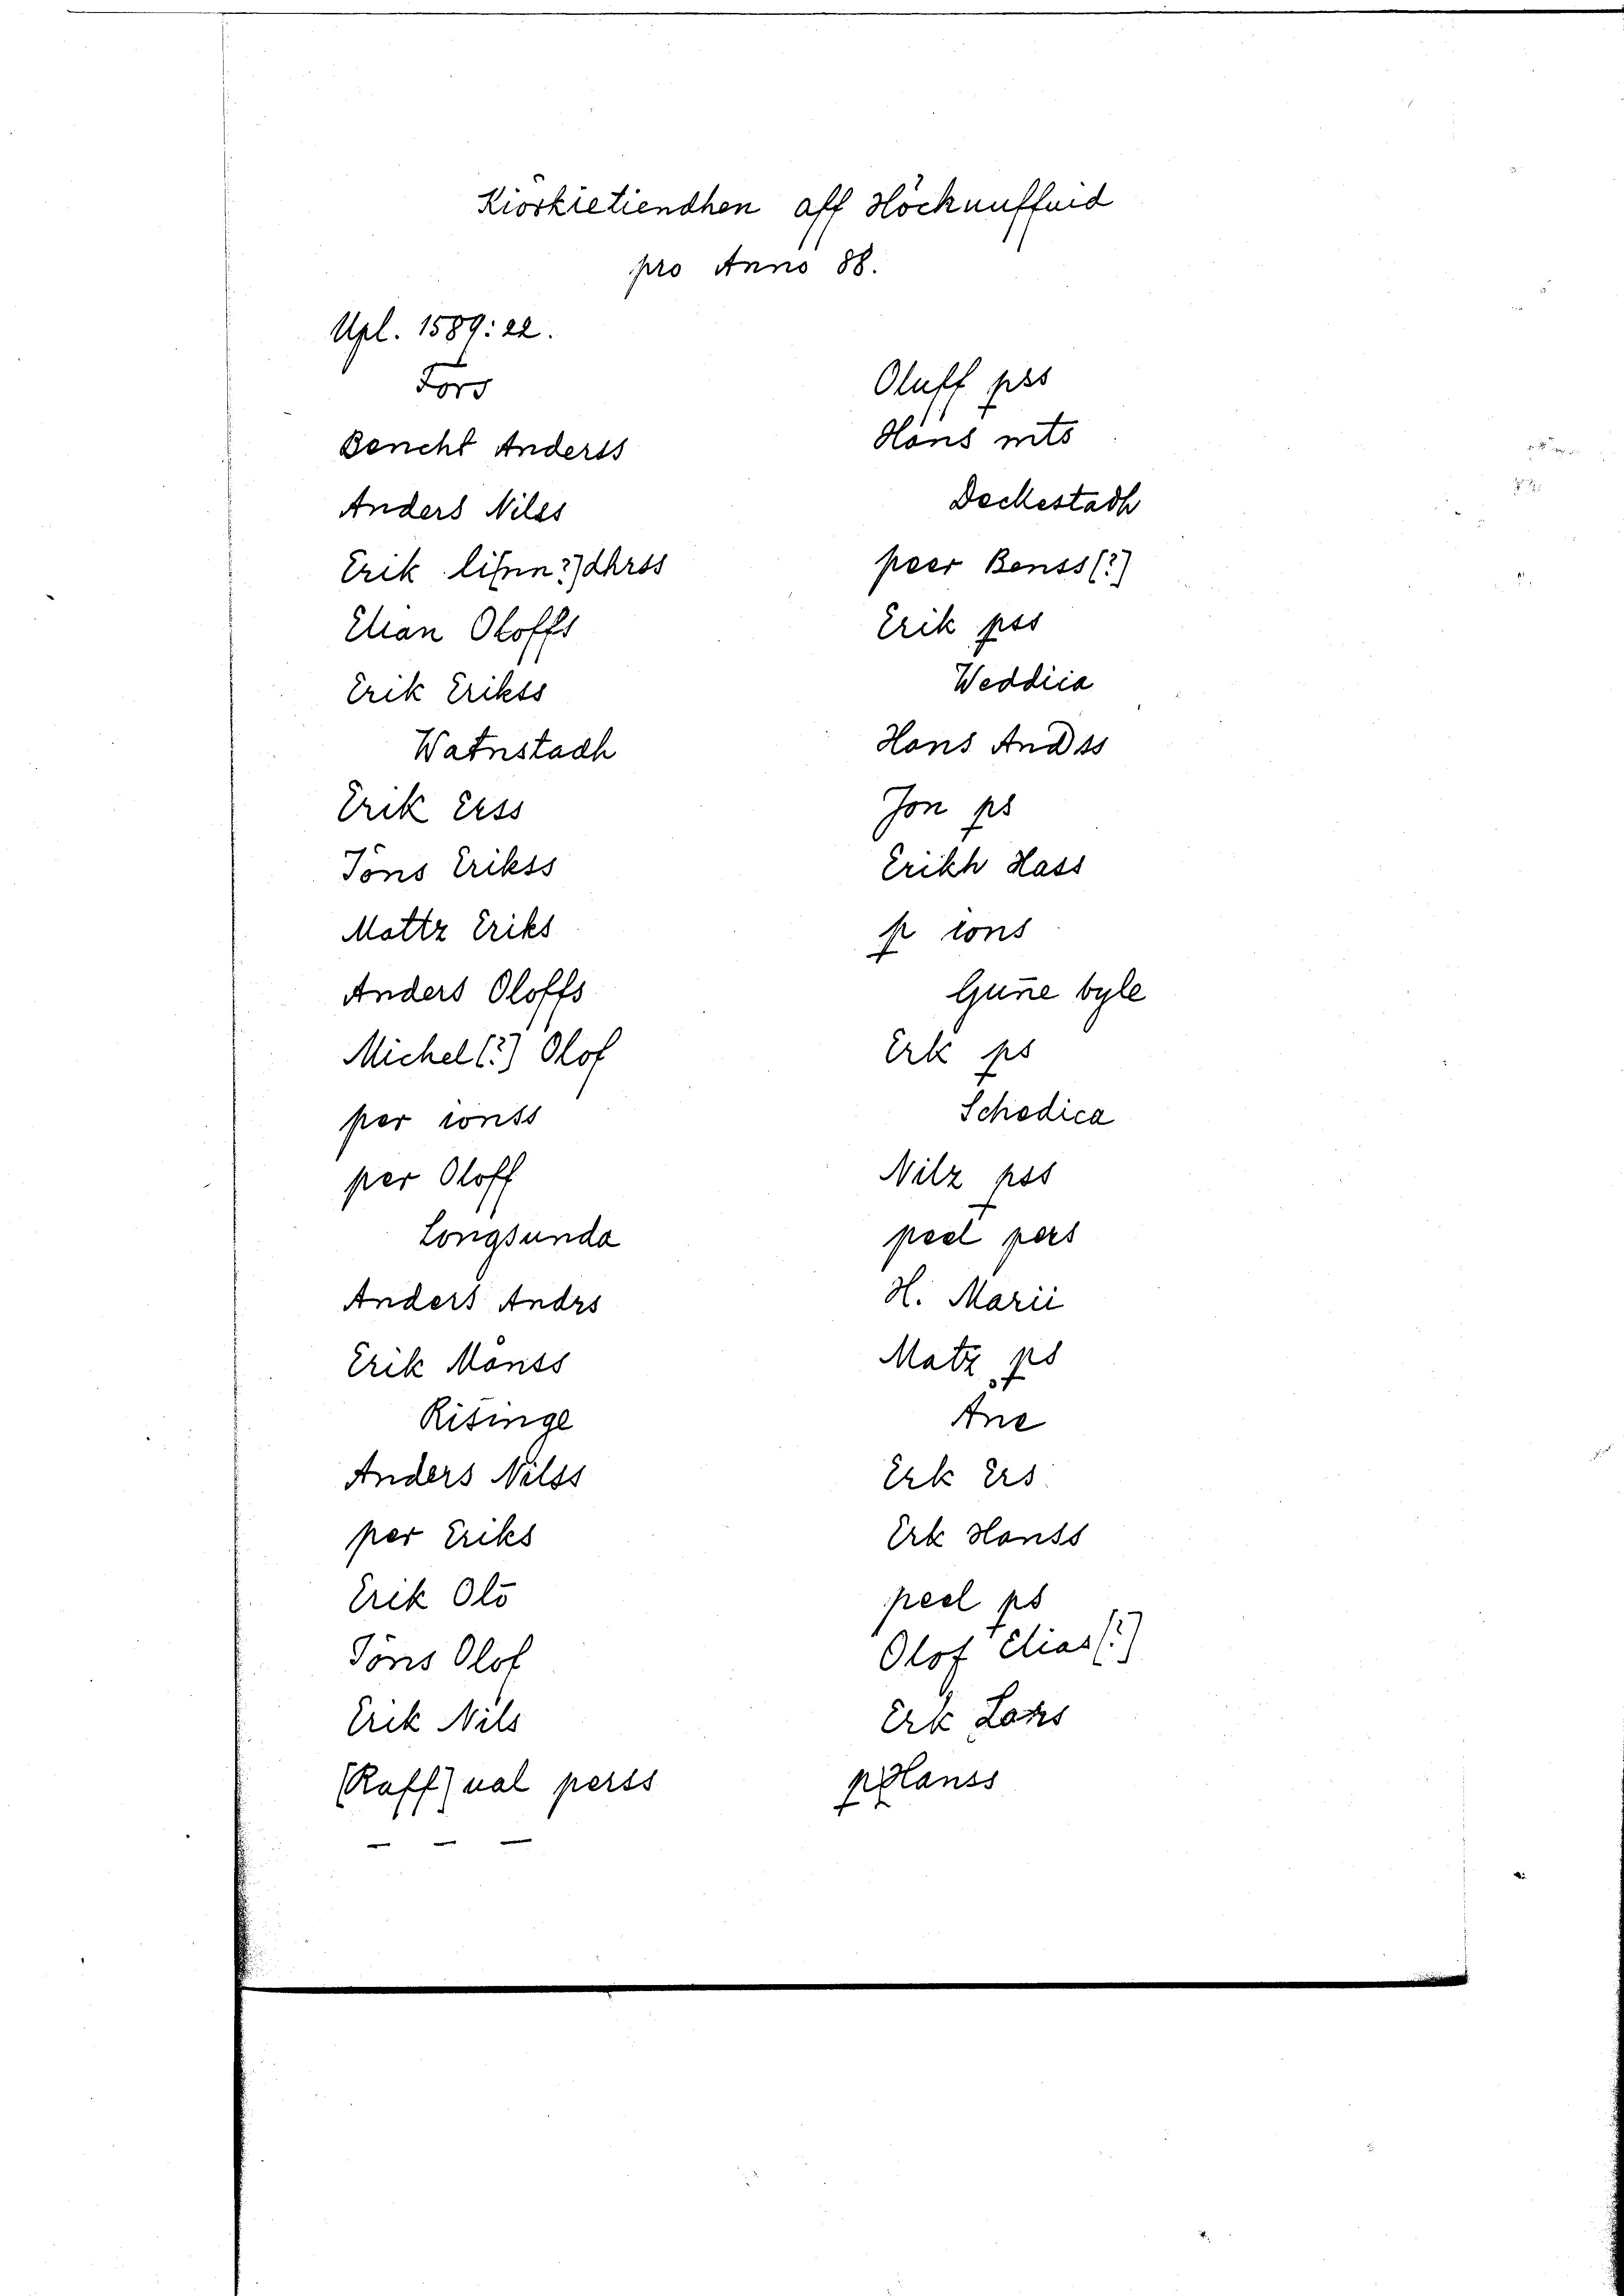 Kiörkietiendhen aff Höcknuffuid
pro Anno 88.
Upl. 1589:22.
Fors
Bencht Anderss
Anders Nilss
Erik dhrss
Elian Oloffs
Erik Erikss
Watnstadh
Erik Erss
Jöns Erikss
Mattz Eriks
Anders Oloffs
Michel (?) Olof
per ionss
per Oloff
Longsunda
Anders Andrs
Erik Månss
Risinge
Anders Nilss
per Eriks
Erik Olō
Jöns Olof
Erik Nils
(Raff) ual perss
- - -
Oluff pss
Hans
Deckestadh
peer Benss (?)
Erik pss
Weddiia
Hans Andss
Jon ps
Erikh Hass
p ions
Gūne byle
Erk ps
Schedica
Nilz pss
peel pers
H. Marii
Matz ps
Åne
Erk Ers
Erk Hanss
peel ps
Olof Elias (?)
Erk Lars
p Hanss